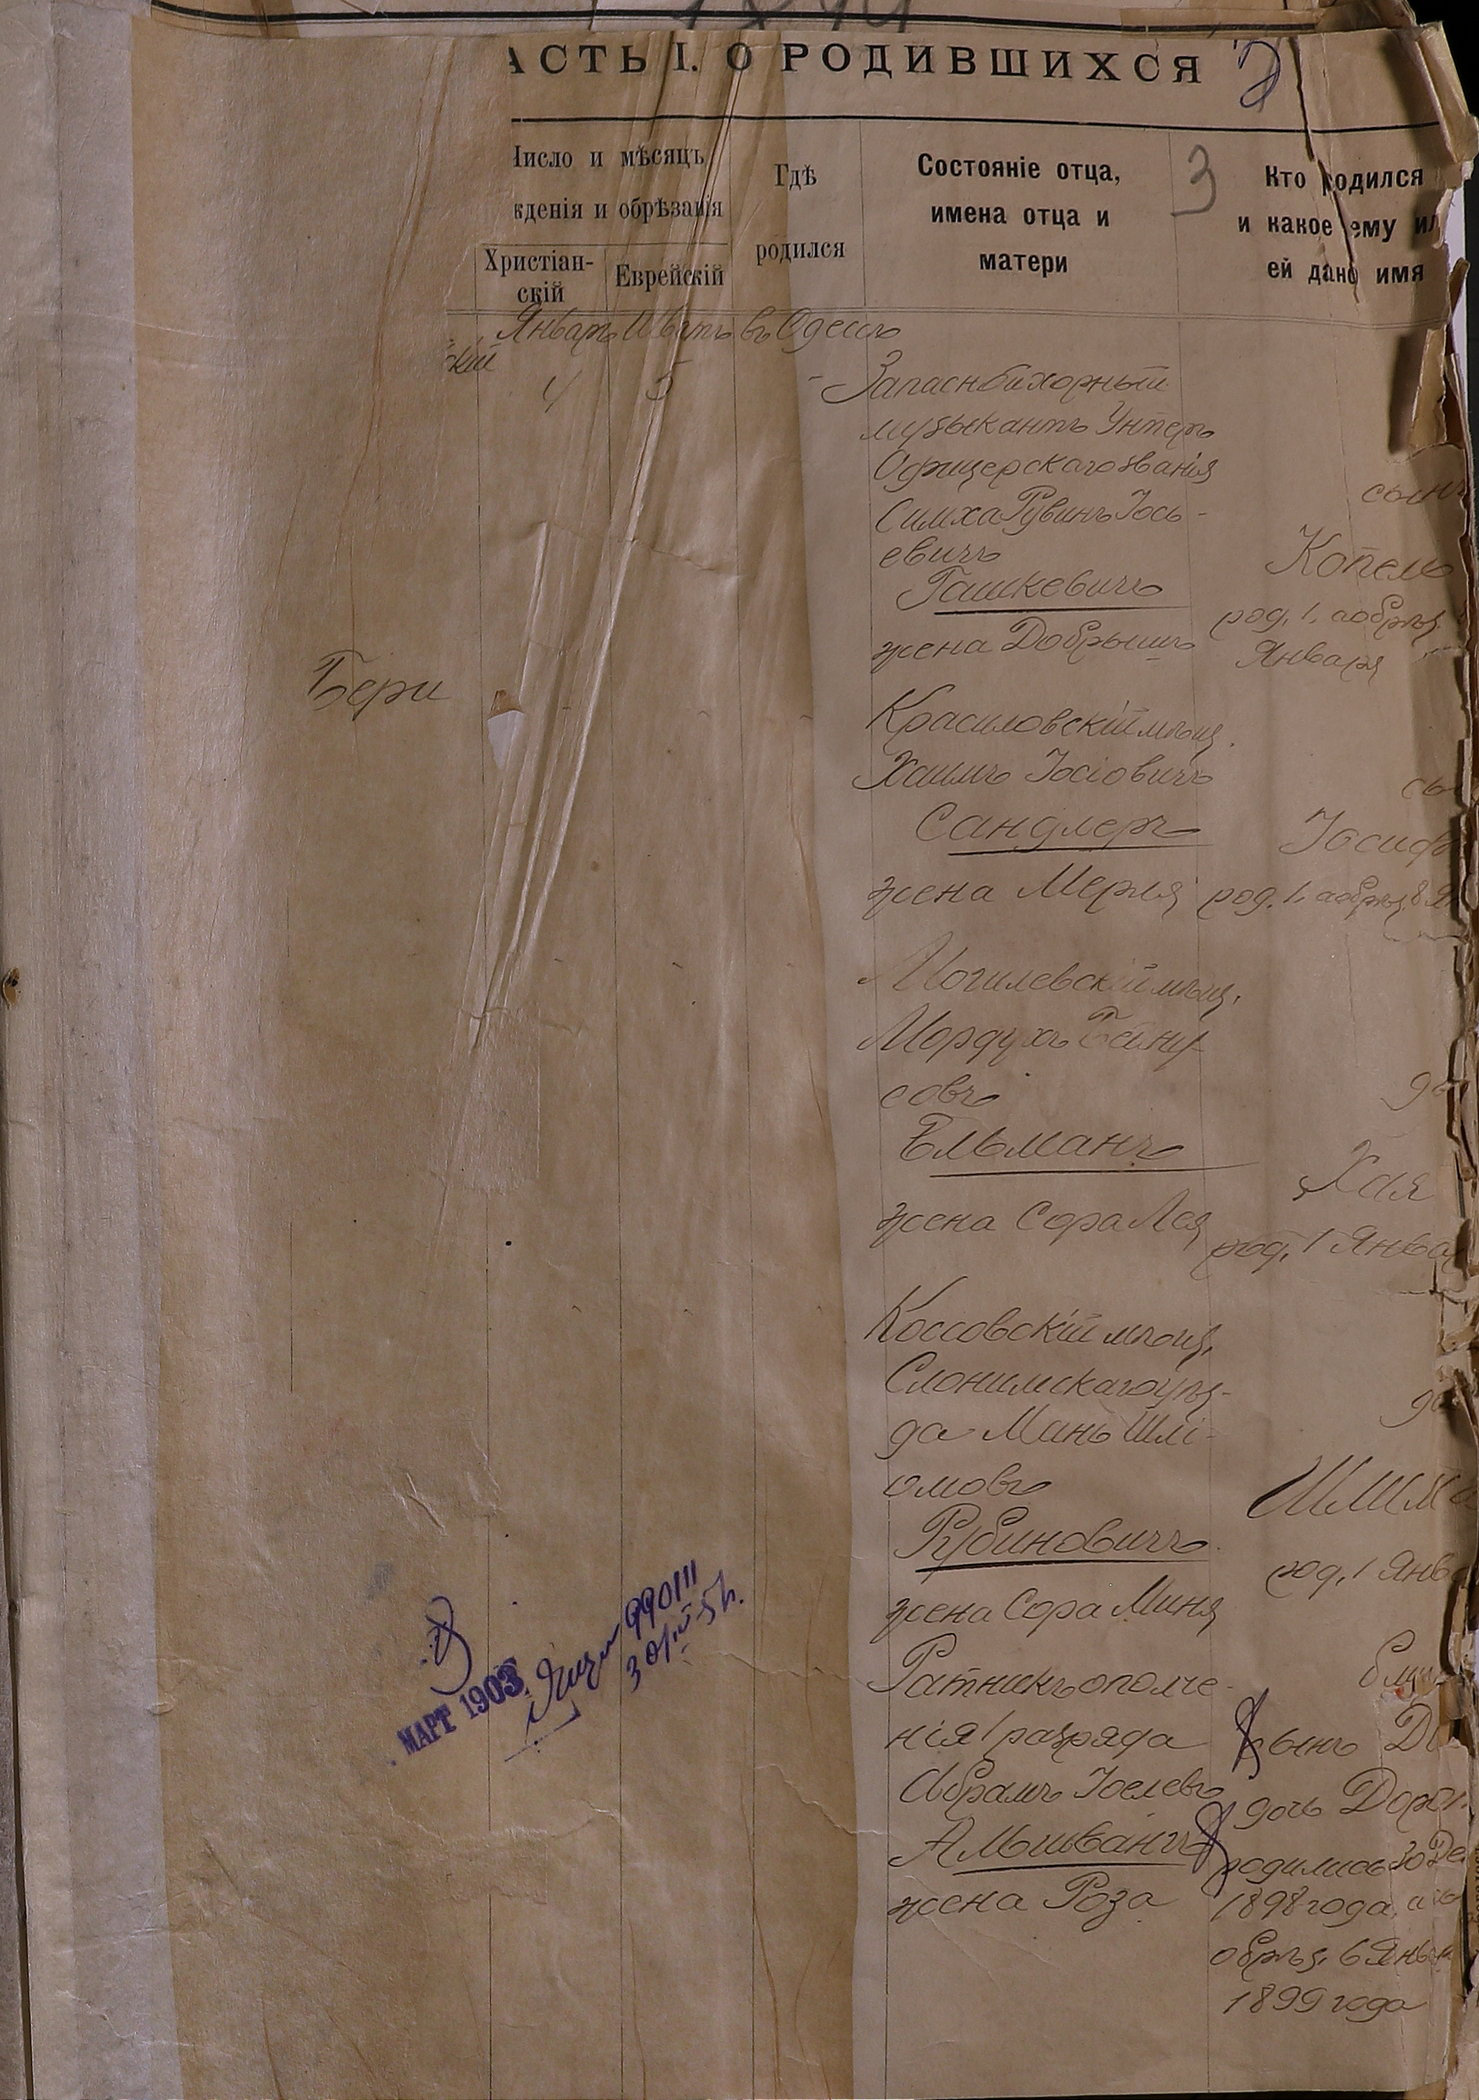 АСТЬ I. О РОДИВШИХСЯ
3
Число и мѣсяцъ
жденія и обрѣзанія
Христіан-
скій
Еврейскій
Гдѣ
родился
Состояніе отца,
имена отца и
матери
Кто родился
и какое ему ил
ей дано имя
Январь Шватъ въ Одессѣ
скій
4 5
Запаснбихорный
музыкантъ Унтеръ
Офицерскаго званія
Симха Рувинъ Іось-
евичъ
Гашкевичъ
жена Добрышъ
сынъ
Копель
род. 1, а обрѣз
Января
Бери
Красиловскій мѣщ.
Хаимъ Іосіовичъ
Сандлеръ
жена Мерля
сы
Іосифъ
род. 1, а обрѣз. 8 Ян
Могилевскій мѣщ.
Мордухъ Бейну-
совъ
Ельманъ
жена Сора Лея
до
Хая
род. 1 Янва
Коссовскій мѣщ.
Слонимскаго уѣз-
да Мань Шлі-
омовъ
Рубиновичъ
жена Сора Миня
до
Шлима
род. 1 Янва
Ратникъ ополче-
нія 1 разряда
Абрамъ Іоелевъ
Альшвангъ
жена Роза
близн
сынъ
дочь Дорот
родились 30 Де
1898 года, а
обрѣз. 6 Янв
1899 года
МАРТ 1903
990111